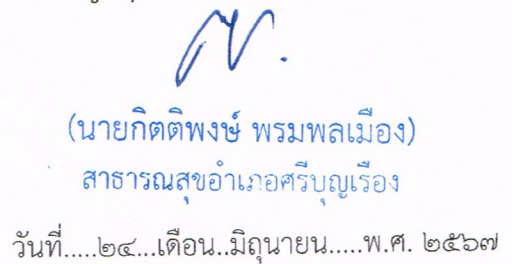 (นายกิตติพงษ์ พรมพลเมือง)
สาธารณสุขอำเภอศรีบุญเรือง
วันที่.....๒๔...เดือน..มิถุนายน.....พ.ศ. ๒๕๖๗